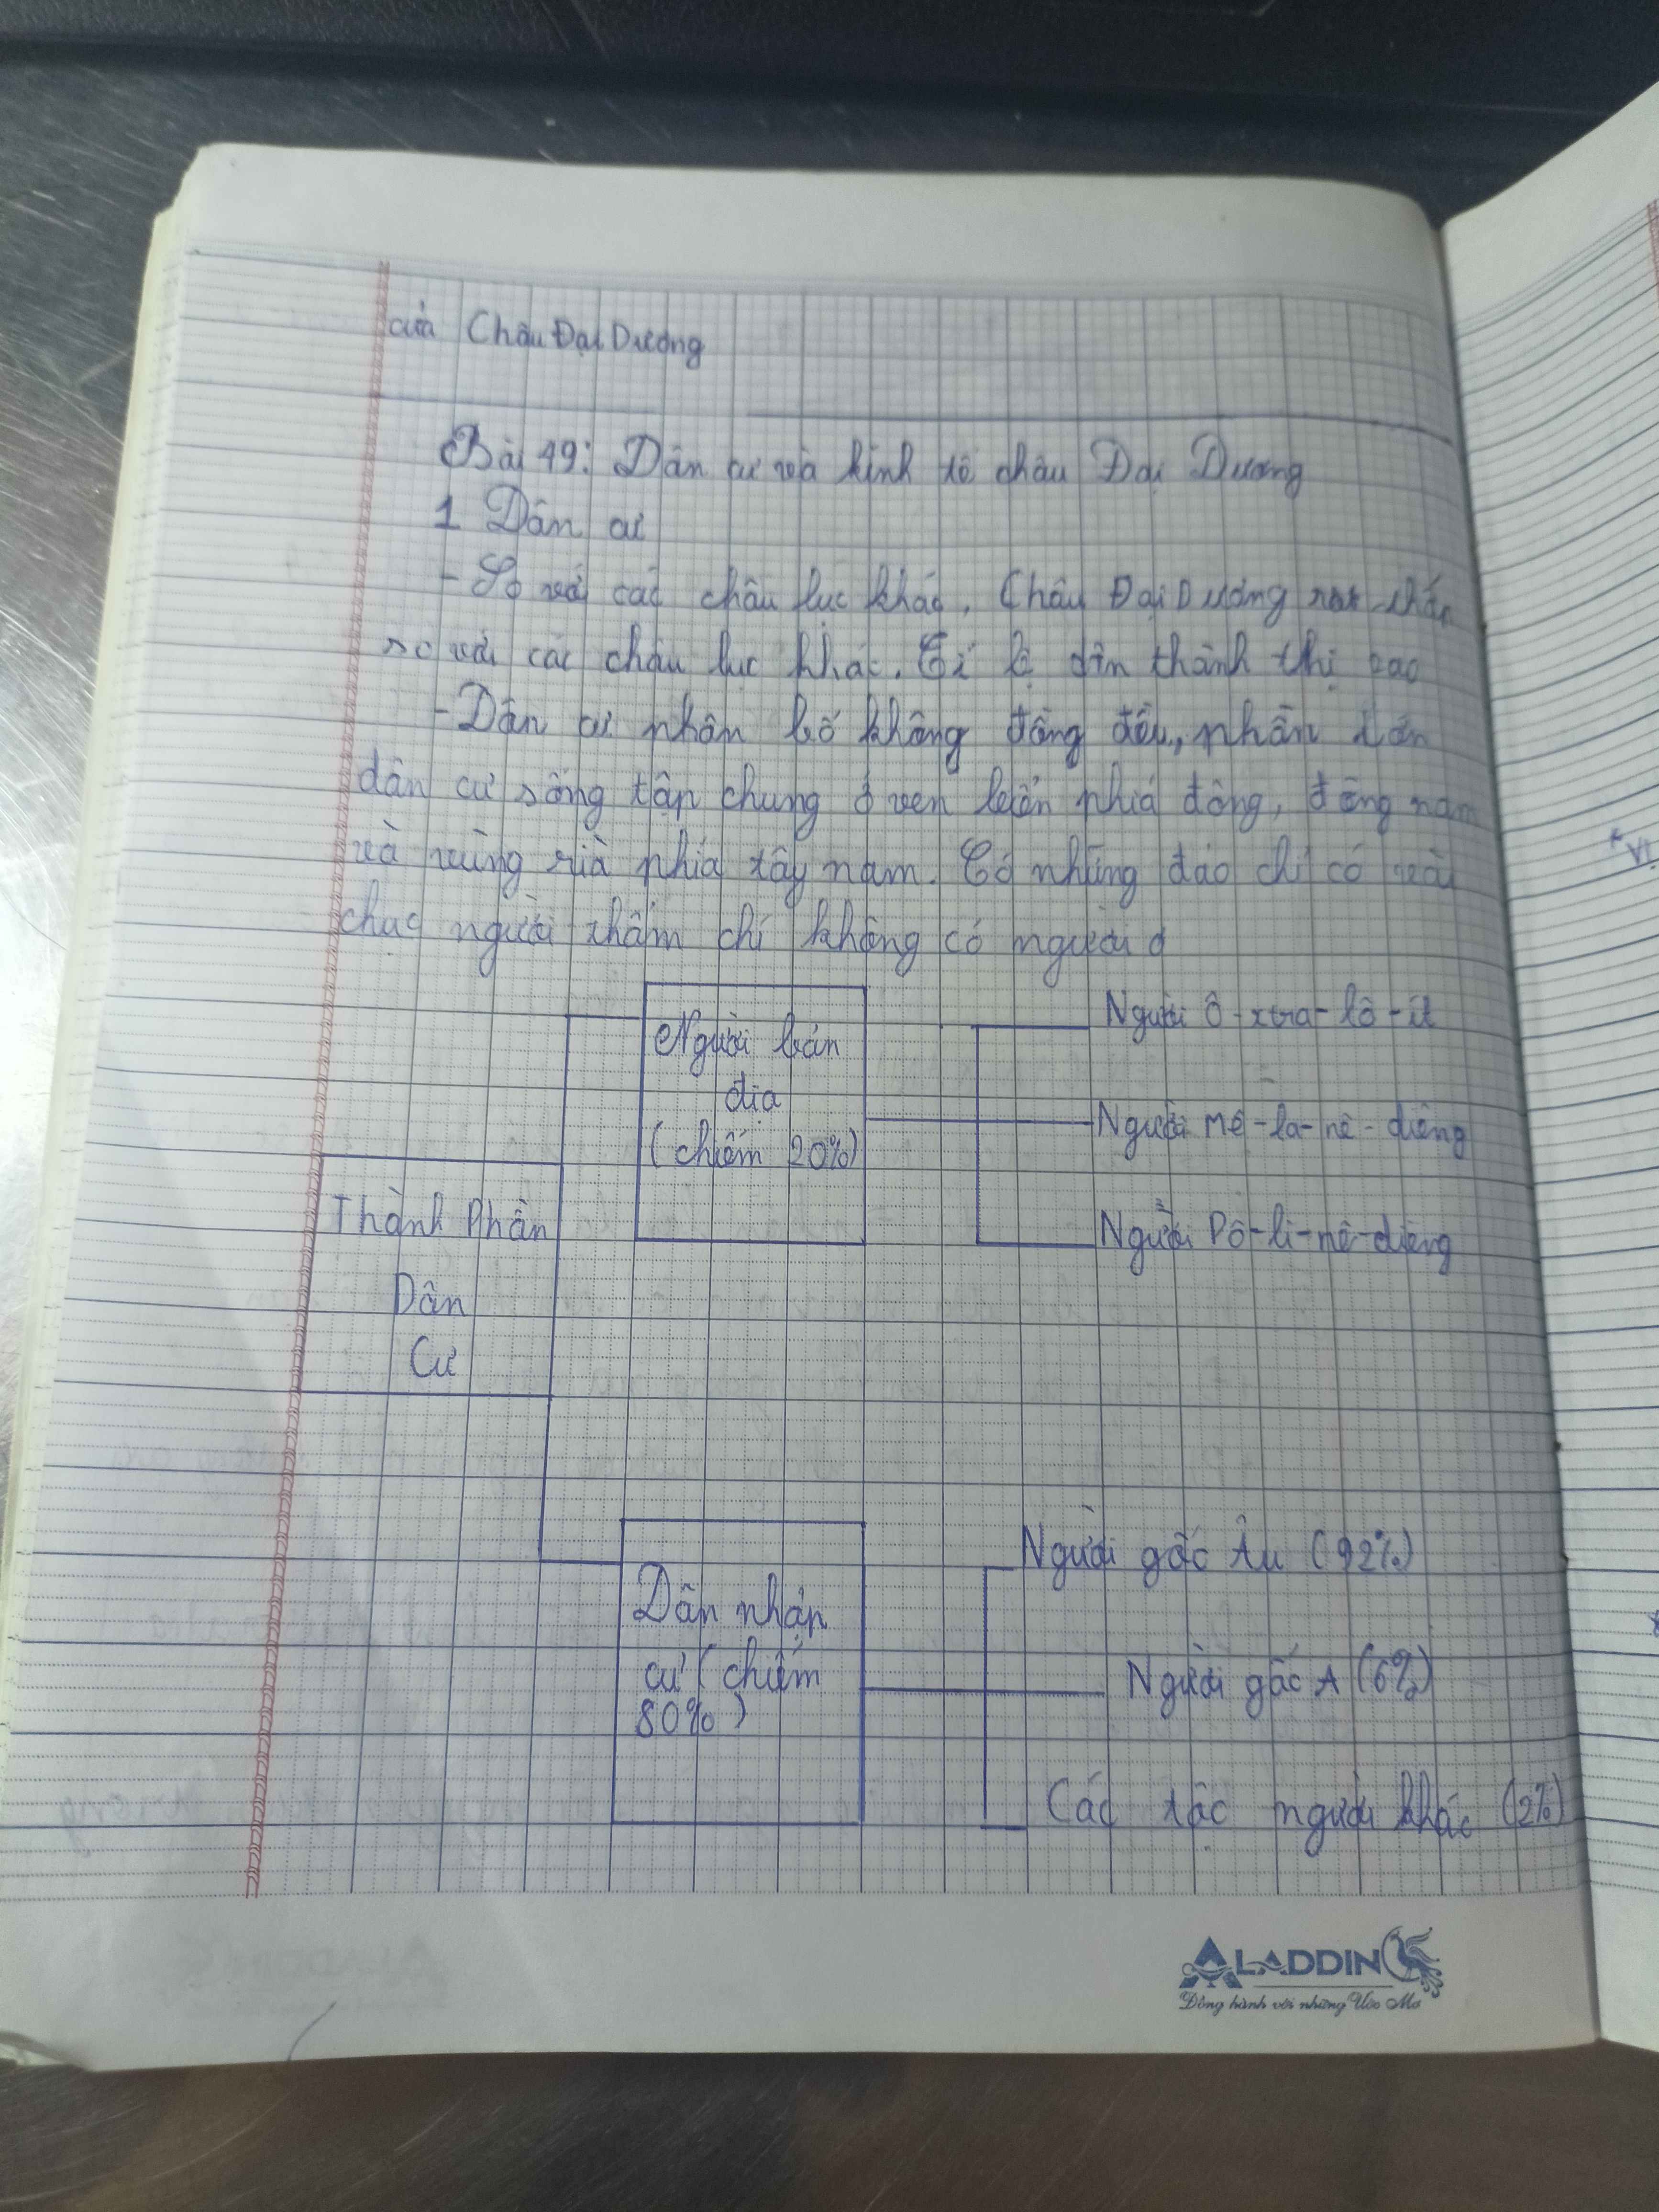 của Châu Đại Dương
Bài 49: Dân cư và kinh tế châu Đại Dương
1 Dân cư
- So với các châu lục khác, Châu Đại Dương rất thấp
so với các châu lục khác. Tỉ lệ dân thành thị cao
- Dân cư phân bố không đồng đều, phần lớn
dân cư sống tập chung ở ven biển phía đông, đông nam
và vùng rìa phía tây nam. Có những đảo chỉ có vài
chục người thậm chí không có người ở
Người bản
địa
(chiếm 20%)
Người Ô-xtra-lô-it
Người Mê-la-nê-diêng
Người Pô-li-nê-diêng
Thành Phần
Dân
Cư
Dân nhập
cư (chiếm
80%)
Người gốc Âu (92%)
Người gốc Á (6%)
Các tộc người khác (2%)
ALADDIN
Đồng hành với những Ước Mơ